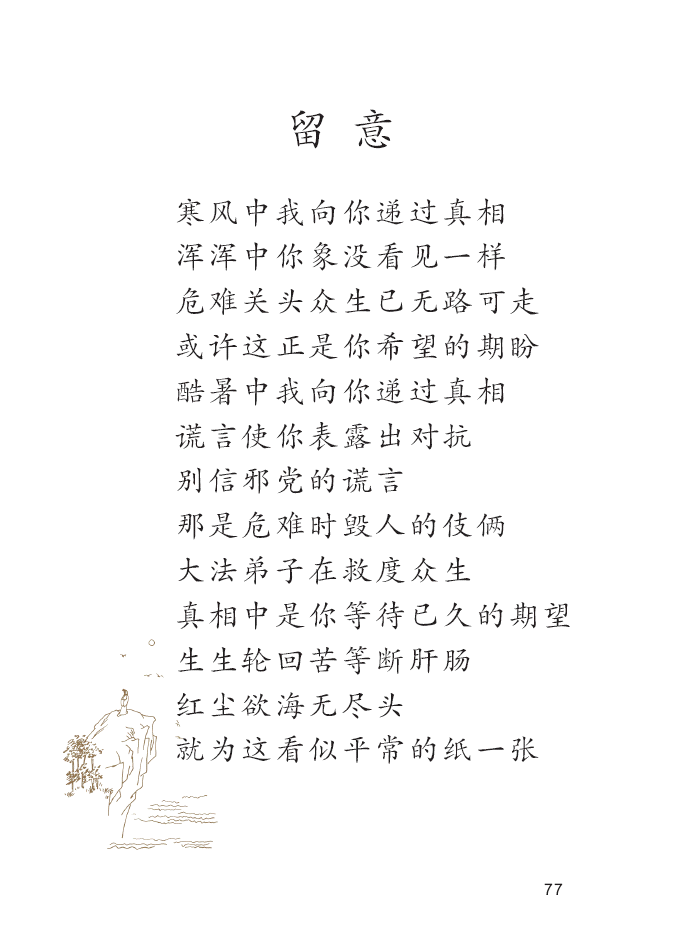 留意
寒风中我向你递过真相
浑浑中你象没看见一样
危难关头众生已无路可走
或许这正是你希望的期盼
酷暑中我向你递过真相
谎言使你表露出对抗
别信邪党的谎言
那是危难时毁人的伎俩
大法弟子在救度众生
真相中是你等待已久的期望
生生轮回苦等断肝肠
红尘欲海无尽头
就为这看似平常的纸一张
77